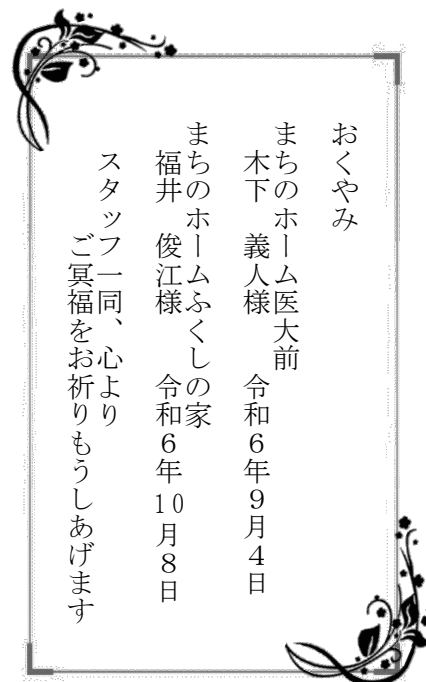 おくやみ
まちのホーム医大前
木下　義人様　　令和６年９月４日
まちのホームふくしの家
福井　俊江様　　令和６年10月８日
スタッフ一同、心より
ご冥福をお祈りもうしあげます